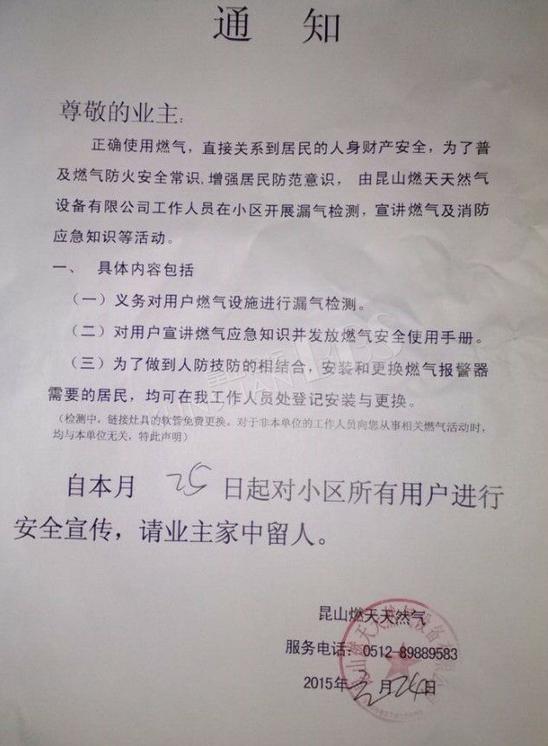 通 知
尊敬的业主:
正确使用燃气，直接关系到居民的人身财产安全，为了普
及燃气防火安全常识,增强居民防范意识， 由昆山燃天天然气
设备有限公司工作人员在小区开展漏气检测，宣讲燃气及消防
应急知识等活动。
一、 具体内容包括
（一）义务对用户燃气设施进行漏气检测。
（二）对用户宣讲燃气应急知识并发放燃气安全使用手册。
（三）为了做到人防技防的相结合，安装和更换燃气报警器
需要的居民，均可在我工作人员处登记安装与更换。
(检测中，链接灶具的软管免费更换。对于非本单位的工作人员向您从事相关燃气活动时，
均与本单位无关，特此声明)
自本月 25 日起对小区所有用户进行
安全宣传，请业主家中留人。
昆山燃天天然气
服务电话：0512-89889583
2015年 2 月 24 日